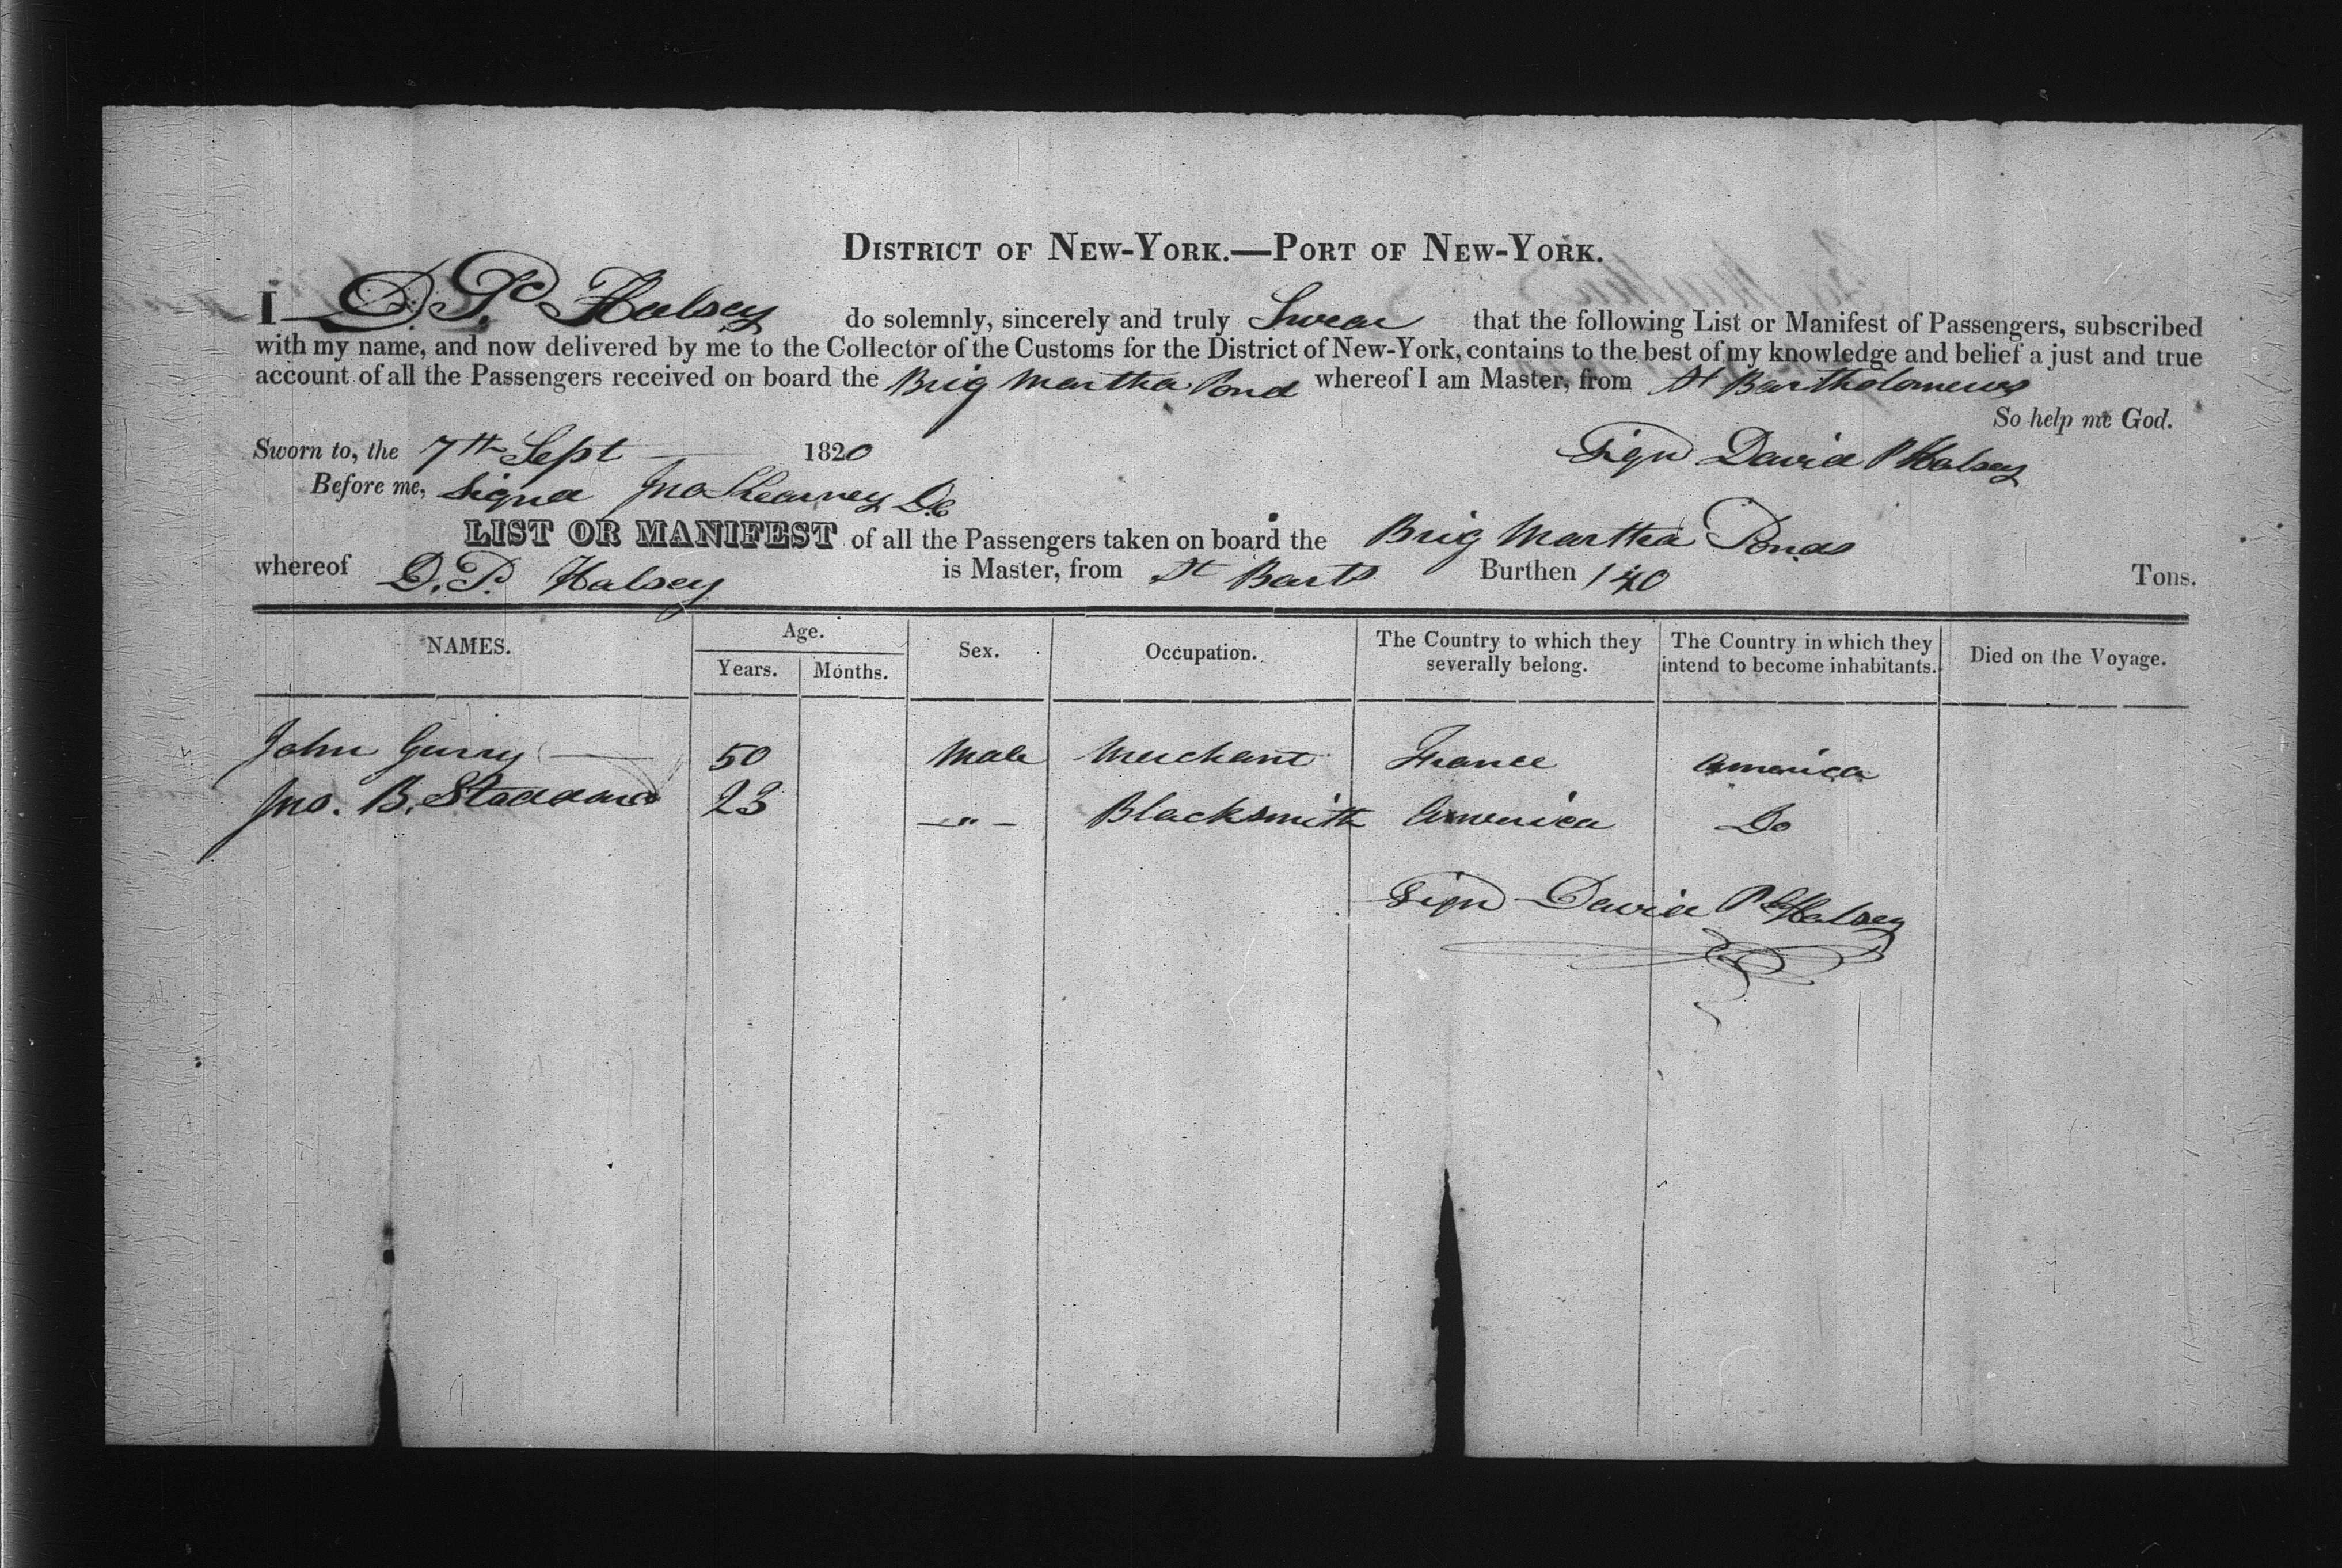 DISTRICT OF NEW-YORK.—PORT OF NEW-YORK.
I D. P. Halsey do solemnly, sincerely and truly Swear that the following List or Manifest of Passengers, subscribed
with my name, and now delivered by me to the Collector of the Customs for the District of New-York, contains to the best of my knowledge and belief a just and true
account of all the Passengers received on board the Brig Martha Pond whereof I am Master, from St Bartholomews
So help me God.
Sworn to, the 7th Sept 1820 Sign David P Halsey
Before me, signd Jno Kearney DC
LIST OR MANIFEST of all the Passengers taken on board the Brig Martha Ponds
whereof D. P. Halsey is Master, from St Barts Burthen 140 Tons.
NAMES. Age. Years. Months. Sex. Occupation. The Country to which they severally belong. The Country in which they intend to become inhabitants. Died on the Voyage.
John Gurry 50 Male Merchant France America
Jno. B. Stoddard 23 —"— Blacksmith America Do
Sign David P Halsey